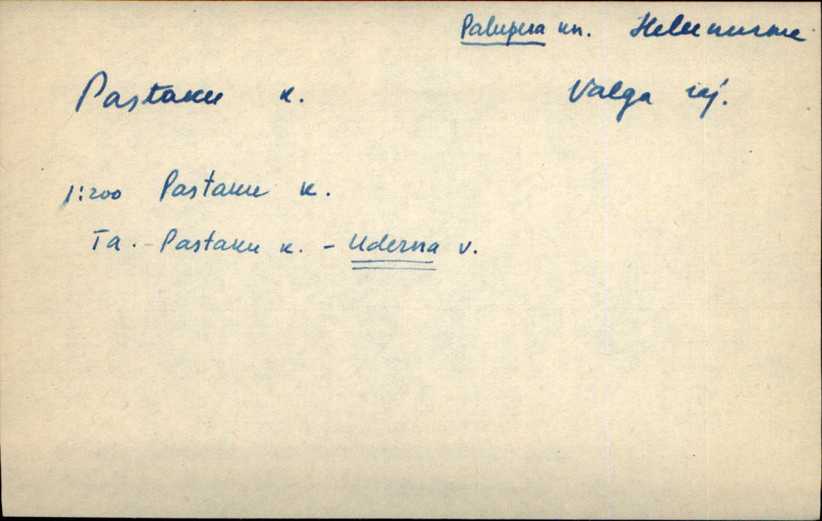 Palupera kn. Helenurme
Pastaku k. Valga raj.
1:200 Pastaku k.
Ta. - Pastaku k. - Uderna v.